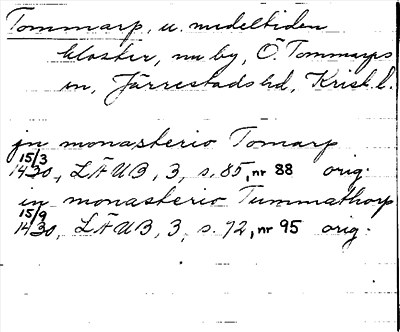 Tommarp, u. medeltiden
kloster, nu by, Ö. Tommarps
sn, Järrestads hd, Krist. l.
jn monasterio Tomarp
15/3 1430, LÄUB, 3, s. 85, nr 88 orig.
in monasterio Tummathorp
15/9 1430, LÄUB, 3, s. 92, nr 95 orig.